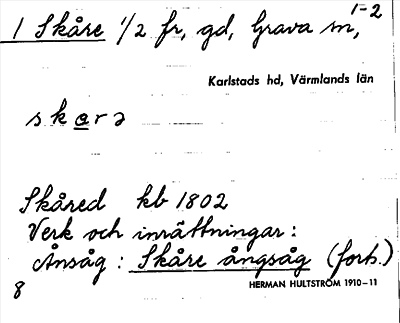 1-2
1 Skåre 1/2 fr, gd, Grava sn,
Karlstads hd, Värmlands län
skarə
Skåred kb 1802
Verk och inrättningar:
Ångsåg: Skåre ångsåg (forts.)
8 HERMAN HULTSTRÖM 1910–11